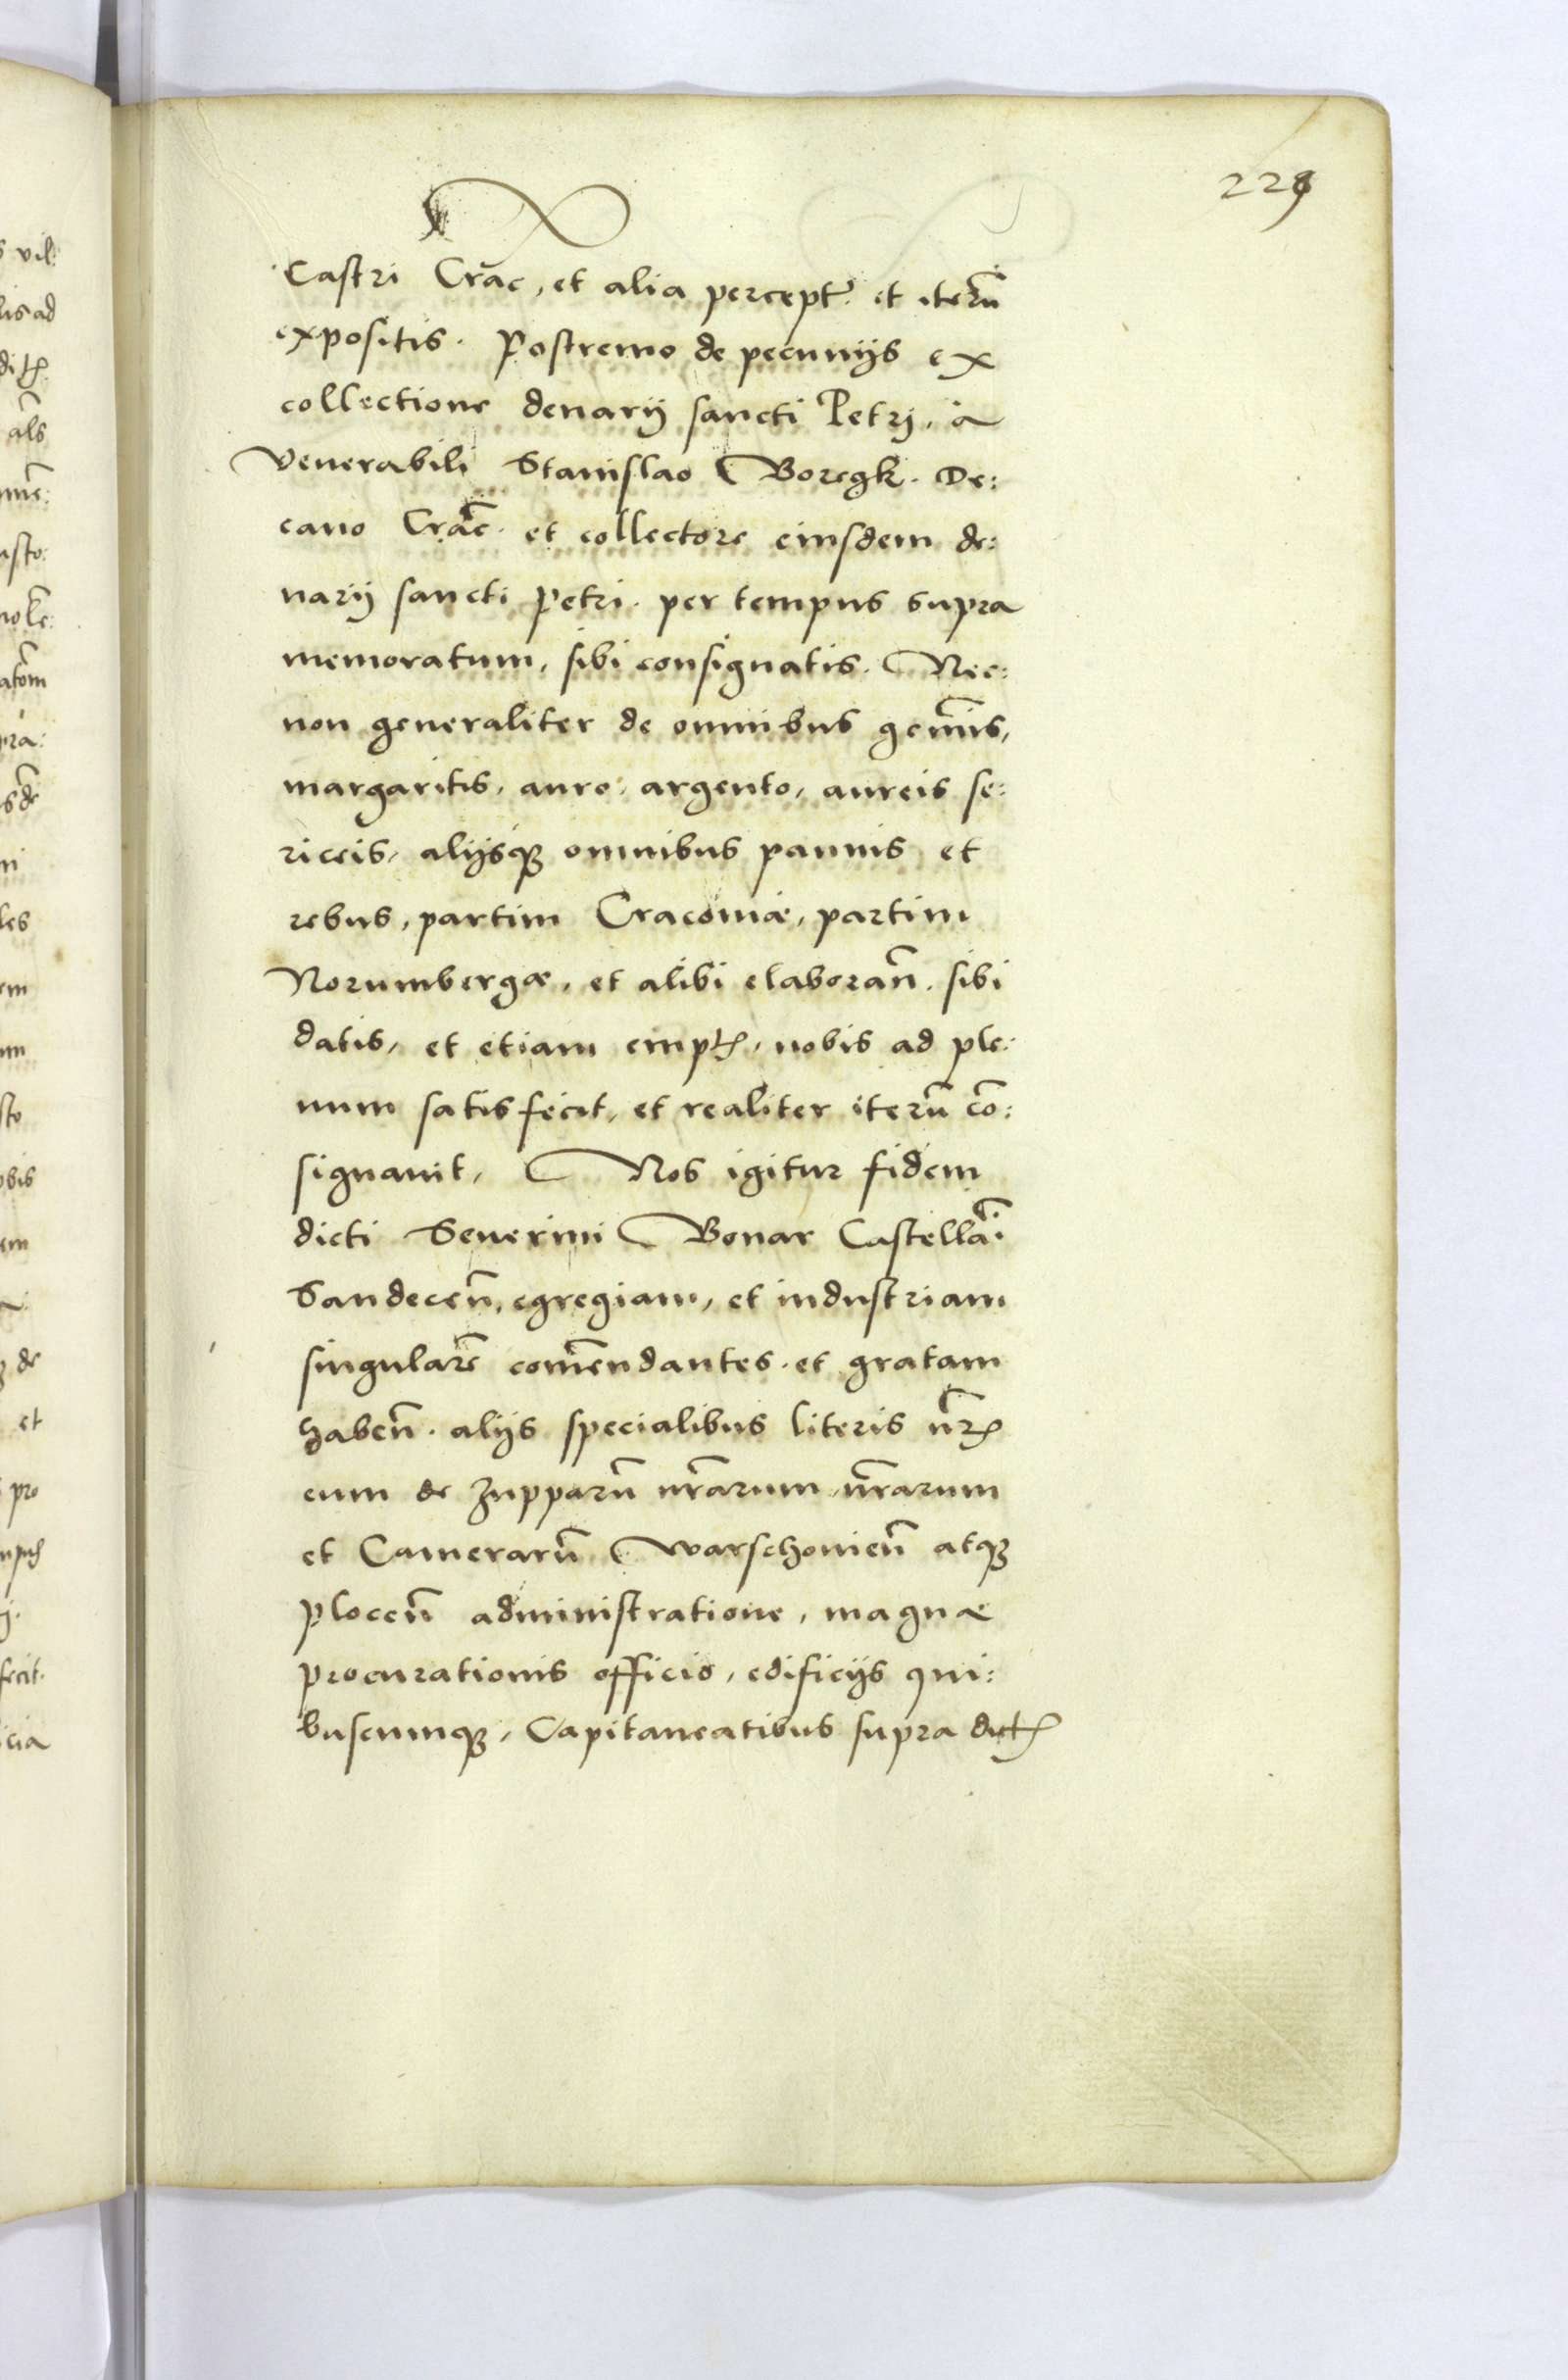 229
Castri Crac̄, et alia percept̄. et iterū
expositis. Postremo de pecunijs ex
collectione denarij sancti Petrj, à
Venerabili Stanislao Boregk. De:
cano Crac̄. et collectore eiusdem de:
narij sancti Petri. per tempus supra
memoratum, sibi consignatis. Nec:
non generaliter de omnibus gem̄is,
margaritis, auro, argento, aureis se:
riceis, alijsq₃ omnibus pannis et
rebus, partim Cracouiæ, partim
Norumbergæ, et alibi elaboran̄. sibi
datis, et etiam emptꝭ, nobis ad ple:
num satisfecit, et realiter iterū cō:
signauit, Nos igitur fidem
dicti Seuerini Bonar Castellāi
Sandecen̄, egregiam, et industriam
singularē com̄endantes. et gratam
haben̄. alijs specialibus literis nr̄ꝭ
eum de Zupparū nr̄arum nr̄arum
et Camerarū Warschouien̄ atq₃
Plocen̄ administratione, magnæ
procurationis officio, edificijs qui:
buscunq₃, Capitaneatibus supra dictꝭ
s vil:
lis ad
ditꝭ
als
usto:
atom
pra:
les
em
um
sto
obis
em
de
et
pro
fecit.
icia